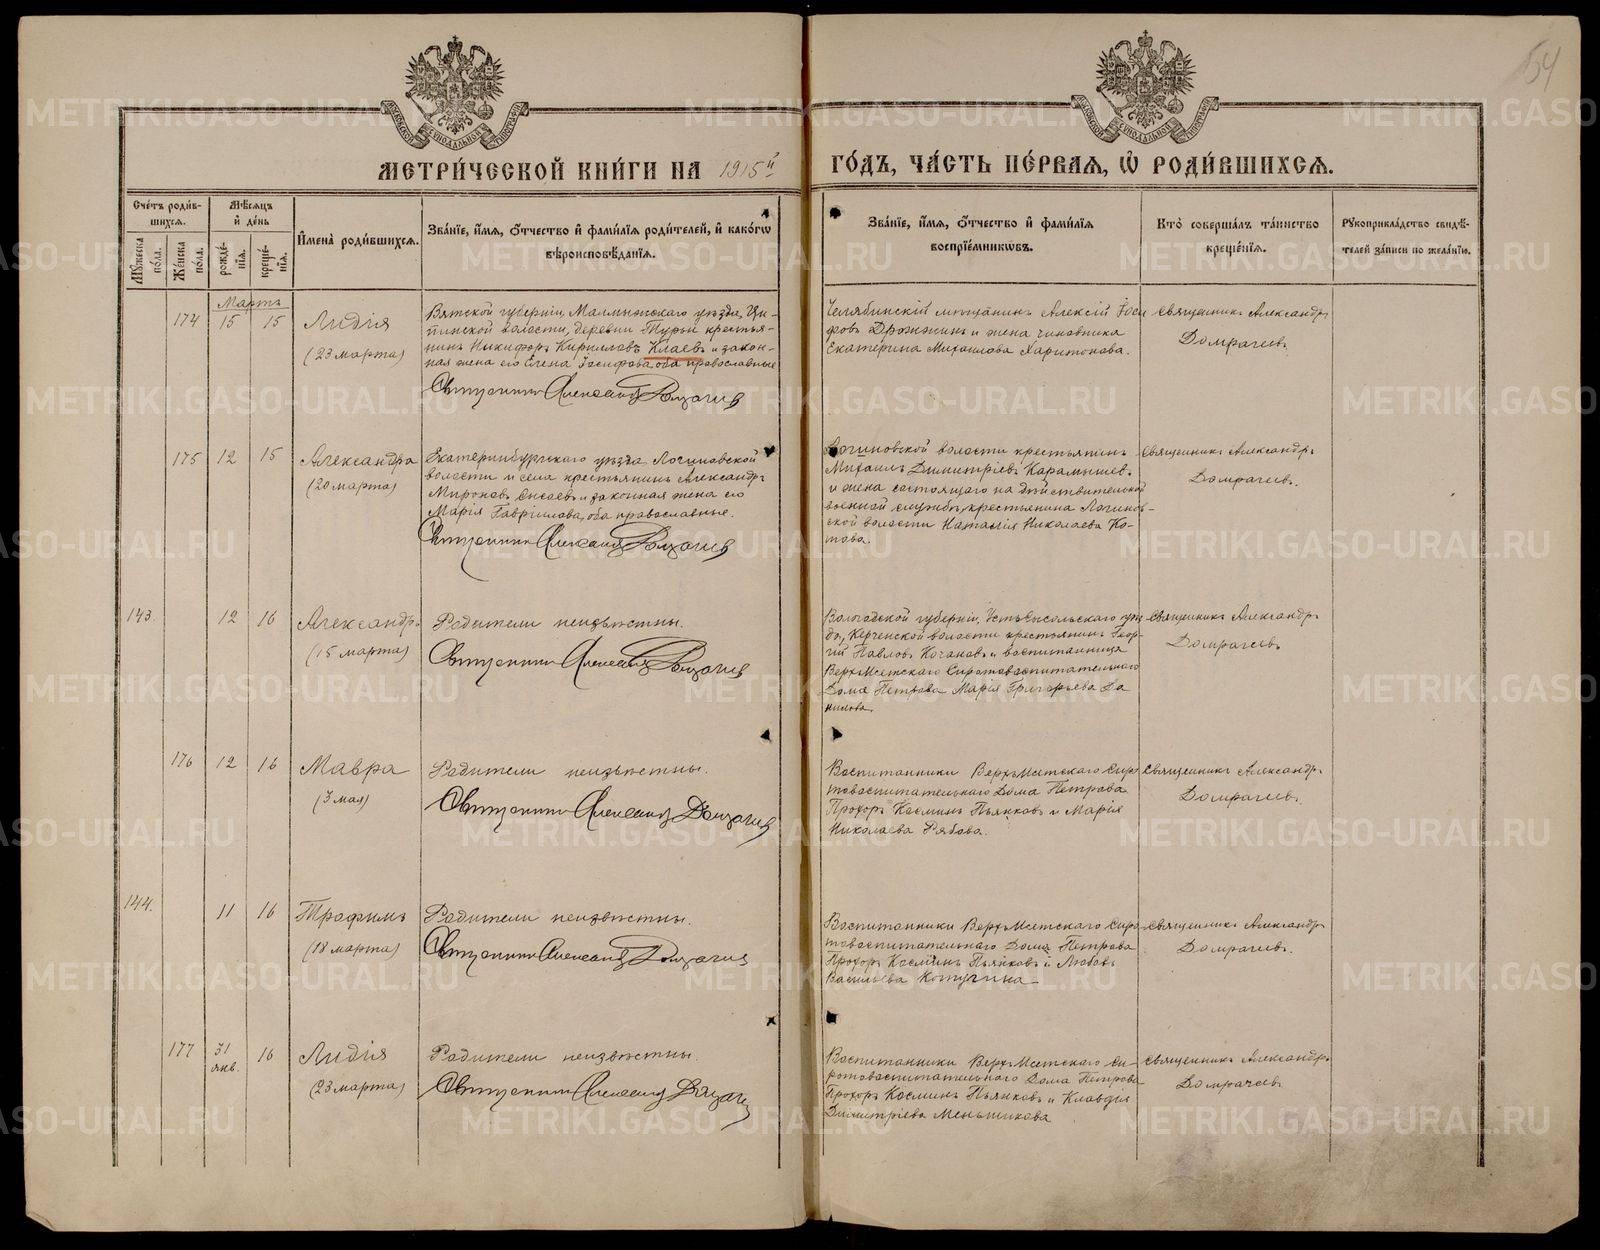 54
МЕТРИ́ЧЕСКОЙ КНИ́ГИ НА 1915й
ГО́ДЪ, ЧА́СТЬ ПЕ́РВАЯ, Ѽ РОДИ́ВШИХСЯ.
Сче́тъ роди́в-
шихся.
Му́жеска
по́ла.
Же́нска
по́ла.
Мѣ́сяцъ
и҆ де́нь
рожде́-
нїя.
креще́-
нїя.
И҆мена̀ роди́вшихся.
Зва́нїе, и҆́мя, ѻ҆́тчество и҆ фами́лїя роди́телей, и҆ како́гѡ
вѣроисповѣ́данїя.
Зва́нїе, и҆́мя, ѻ҆́тчество и҆ фами́лїя
воспрїе́мникѡвъ.
Кто̀ соверша́лъ та́инство
креще́нїя.
Рꙋкоприкла́дство свидѣ́-
телей за́писи по жела́нїю.
Мартъ
174
15
15
Лидія
(23 марта)
Вятской губерніи, Малмыжскаго уѣзда, Ци-
пинской волости, деревни Турьи крестья-
нинъ Никифоръ Кирилловъ Клаевъ и закон-
ная жена его Елена Іосифова, оба православные
Священникъ Александръ Домрачевъ
Челябинскій мѣщанинъ Алексій Іоси
фовъ Дрожжинъ и жена чиновника
Екатерина Михаилова Харитонова.
Священникъ Александръ
Домрачевъ.
175
12
15
Александра
(20 марта)
Екатеринбургскаго уѣзда Логиновской
волости и села крестьянинъ Александръ
Мироновъ Сысаевъ и законная жена его
Марія Гавріилова, оба православные.
Священникъ Александръ Домрачевъ
Логиновской волости крестьянинъ
Михаилъ Димитріевъ Карамышевъ
и жена состоящаго на дѣйствительной
военной службѣ крестьянина Логинов-
ской волости Наталія Николаева Ко-
това.
Священникъ Александръ
Домрачевъ.
143.
12
16
Александръ
(15 марта)
Родители неизвѣстны.
Священникъ Александръ Домрачевъ
Вологодской губерніи, Устьсысольскаго уѣз
да, Керченской волости крестьянинъ Геор-
гій Павловъ Кочановъ и воспитанница
Верхъ-Исетскаго Сиротовоспитательнаго
Дома Петрова Марія Григорьева Да
нилова.
Священникъ Александръ
Домрачевъ
176
12
16
Мавра
(3 мая)
Родители неизвѣстны.
Священникъ Александръ Домрачевъ
Воспитанники Верхъ-Исетскаго Сиро
товоспитательнаго Дома Петрова
Прохоръ Косминъ Пьянковъ и Марія
Николаева Рябова.
Священникъ Александръ
Домрачевъ.
144.
11
16
Трофимъ
(18 марта)
Родители неизвѣстны.
Священникъ Александръ Домрачевъ
Воспитанники Верхъ-Исетскаго Сиро
товоспитательнаго Дома Петрова
Прохоръ Косминъ Пьянковъ и Любовь
Васильева Котугина
Священникъ Александръ
Домрачевъ.
177
31
янв.
16
Лидія
(23 марта)
Родители неизвѣстны.
Священникъ Александръ Домрачевъ
Воспитанники Верхъ-Исетскаго Си-
ротовоспитательнаго Дома Петрова
Прохоръ Косминъ Пьянковъ и Клавдія
Димитріева Меньшикова
Священникъ Александръ
Домрачевъ
METRIKI.GASO-URAL.RU